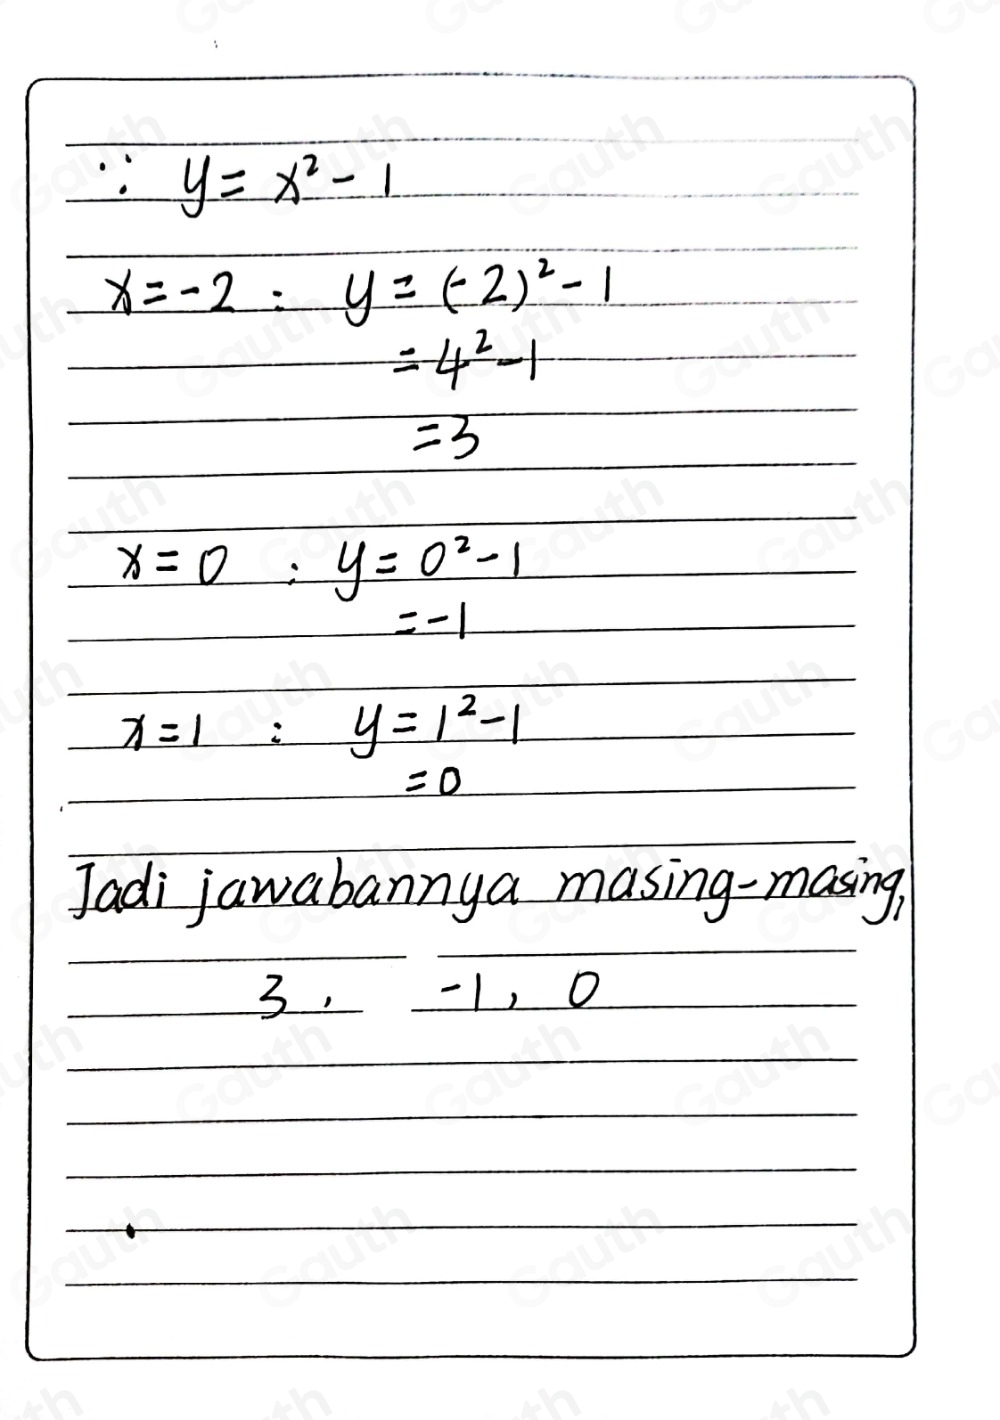 ∵ y = x² - 1
x = -2 : y = (-2)² - 1
= 4² - 1
= 3
x = 0 : y = 0² - 1
= -1
x = 1 : y = 1² - 1
= 0
Jadi jawabannya masing-masing,
3, -1, 0